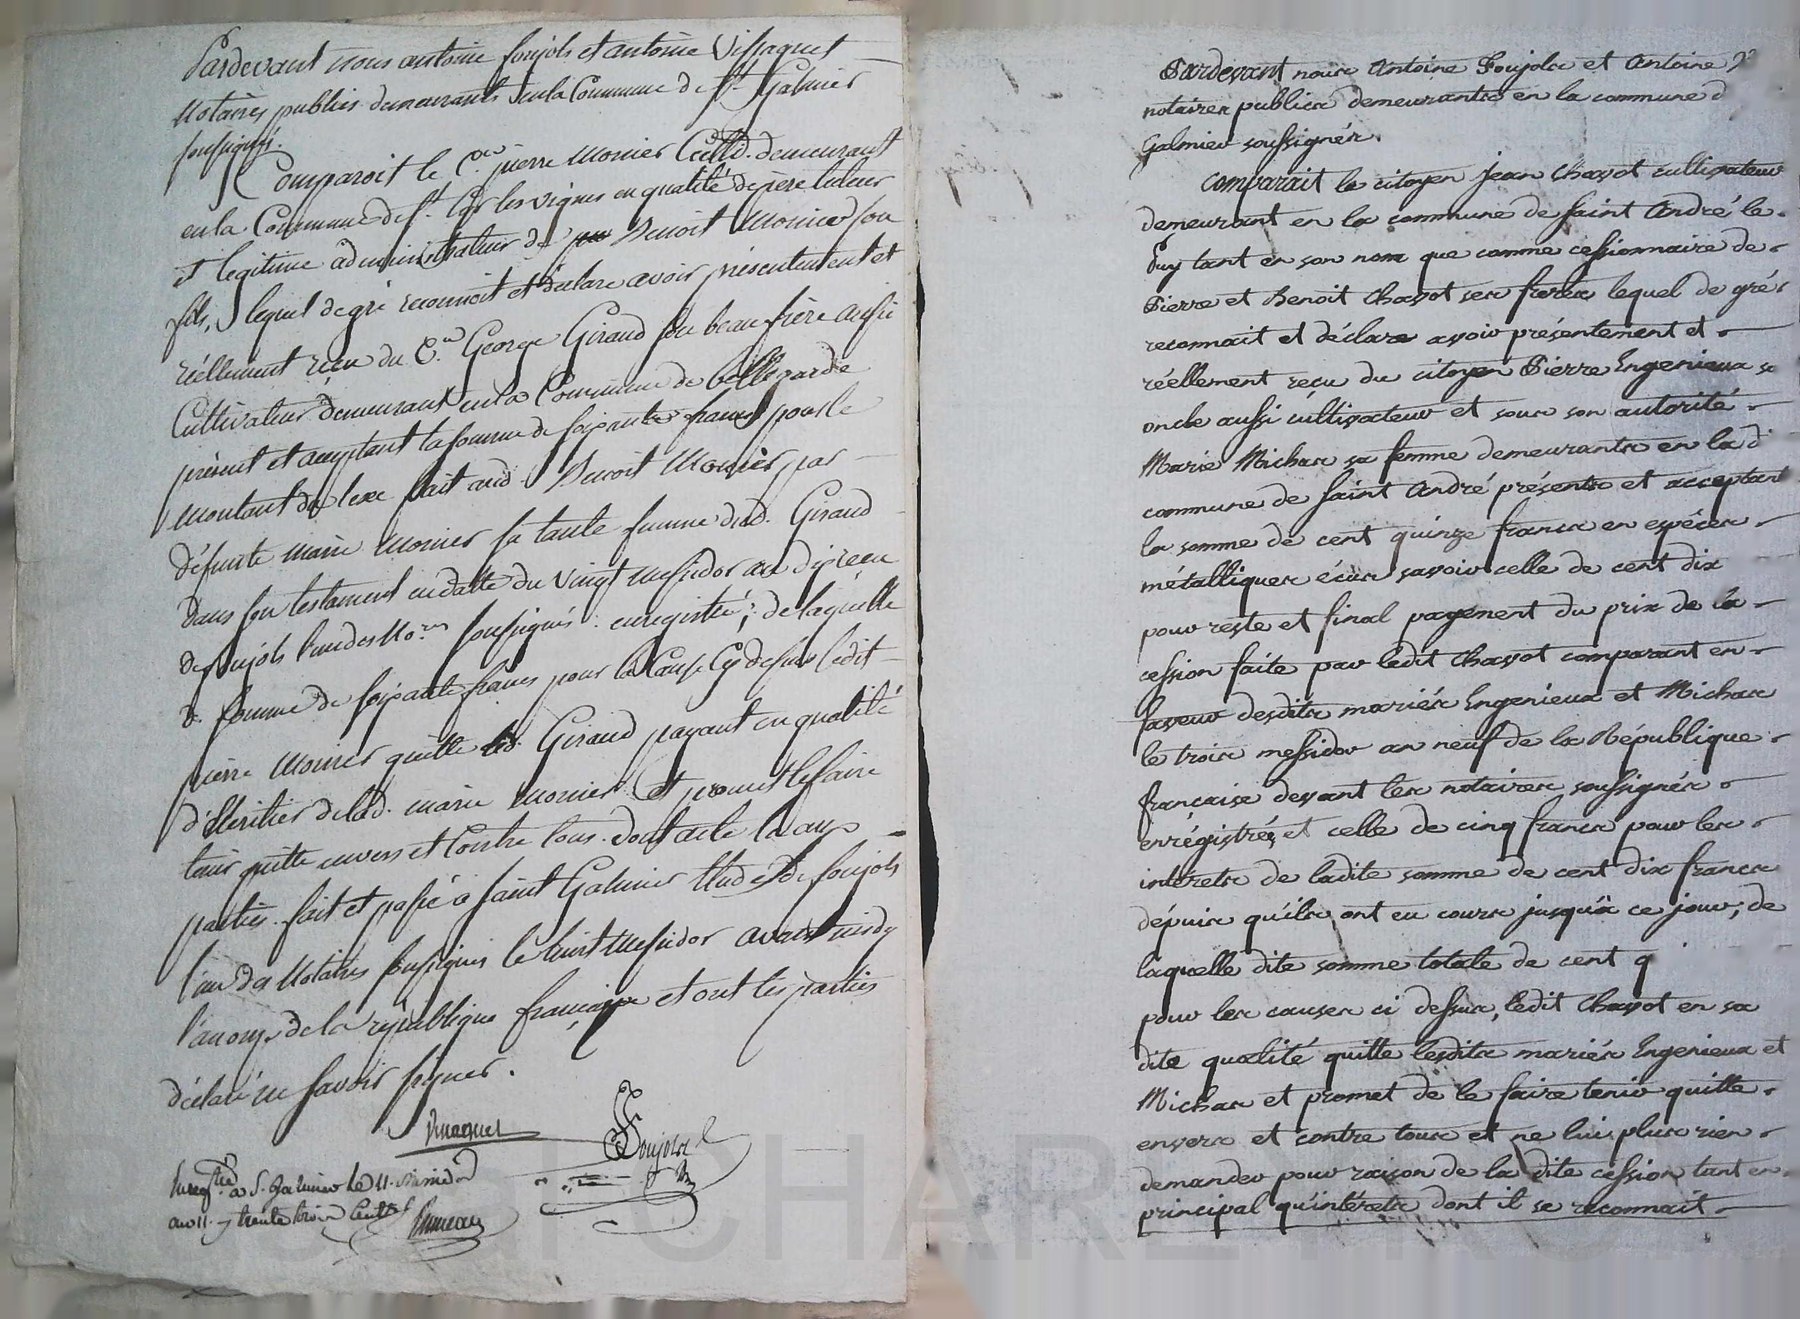 Pardevant nous antoine foujols et antoine Vissaguet
Notaires publics demeurants en la Commune de st. Galmier
soussignés.
Comparoit le Cen. pierre Monier Cultiv. demeurant
en la Commune de st. Cyr les vignes en qualité de père tuteur
et legitime administrateur de Benoit Monier son
fils, lequel de gré reconnoit et déclare avoir présentement et
réellement reçu du Cen. George Giraud son beau frère aussi
Cultivateur demeurant en la Commune de bellegarde
présent et acceptant la somme de soixante francs pour le
montant du legs fait aud. Benoit Monier par
défunte marie Monier sa tante femme dud. Giraud
dans son testament en datte du vingt messidor an dix reçu
de foujols l'un des Nores soussignés enregistré; de laquelle
d. somme de soixante francs pour la Cause Cy dessus ledit
pierre Monier quitte led. Giraud payant en qualité
d'héritier de lad. marie Monier et promet le faire
tenir quitte envers et Contre tous. dont acte aux
parties. fait et passé a saint Galmier Etude de foujols
l'un des Notaires soussignés le huit Messidor avant midy
l'an onze de la république française et ont les parties
déclaré ne savoir signer.
Vissaguet Foujols
Enregtré a S. Galmier le 11. Messidor
an 11. trente trois centes
Pardevant nous Antoine Foujols et Antoine
notaires publics demeurants en la commune d
Galmier soussignés.
Comparait le citoyen jean Chavot cultivateur
demeurant en la commune de saint André le
Puy tant en son nom que comme cessionnaire de
Pierre et Benoit Chavot ses freres lequel de gré
reconnait et déclare avoir présentement et
réellement reçu du citoyen Pierre Engenieux so
oncle aussi cultivateur et sous son autorité
Marie Michas sa femme demeurants en la d
commune de saint André présents et acceptant
la somme de cent quinze francs en espéces
métalliques écus savoir celle de cent dix
pour reste et final payement du prix de la
cession faite par ledit Chavot comparant en
faveur desdits mariés Engenieux et Michas
le trois messidor an neuf de la République
française devant les notaires soussignés
enrégistrée, et celle de cinq francs pour les
intérets de ladite somme de cent dix francs
dépuis qu'ils ont eu cours jusquä ce jour; de
laquelle dite somme totale de cent q
pour les causes ci dessus, ledit Chavot en sa
dite qualité quitte lesdits mariés Engenieux et
Michas et promet de le faire tenir quitte
envers et contre tous et ne lui plus rien
demander pour raison de la dite cession tant en
principal qu'intérets dont il se reconnait